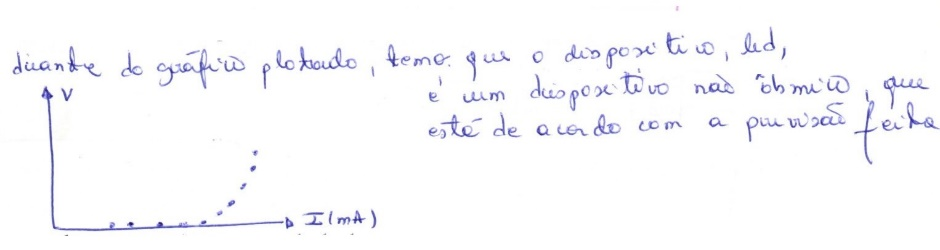 diante do gráfico plotado, temos que o dispositivo, led,
é um dispositivo não ôhmico, que
está de acordo com a previsão feita
V
I (mA)